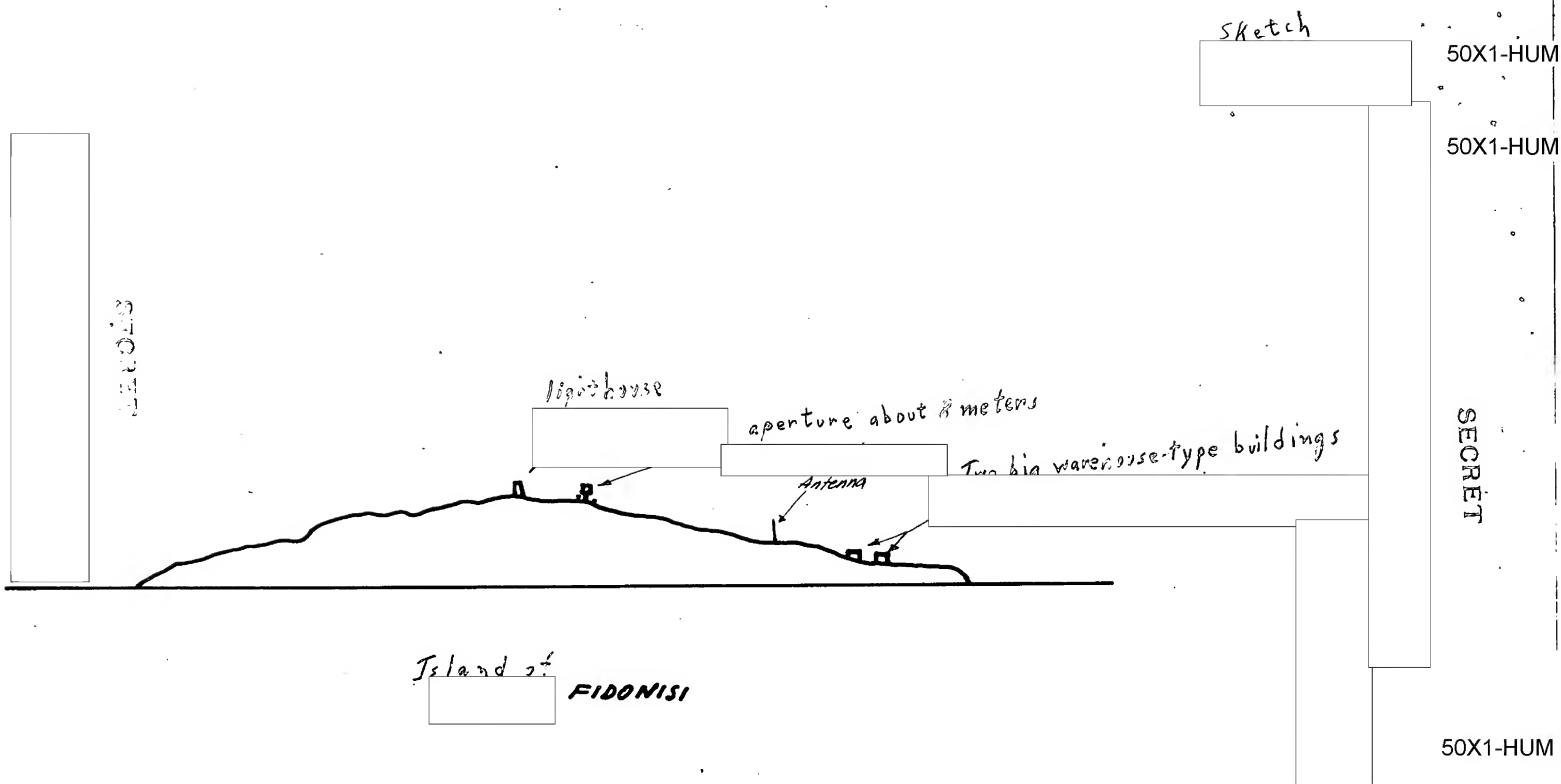 Sketch
50X1-HUM
50X1-HUM
SECRET
lighthouse
aperture about meters
Two big warehouse-type buildings
Antenna
SECRET
Island of
FIDONISI
50X1-HUM